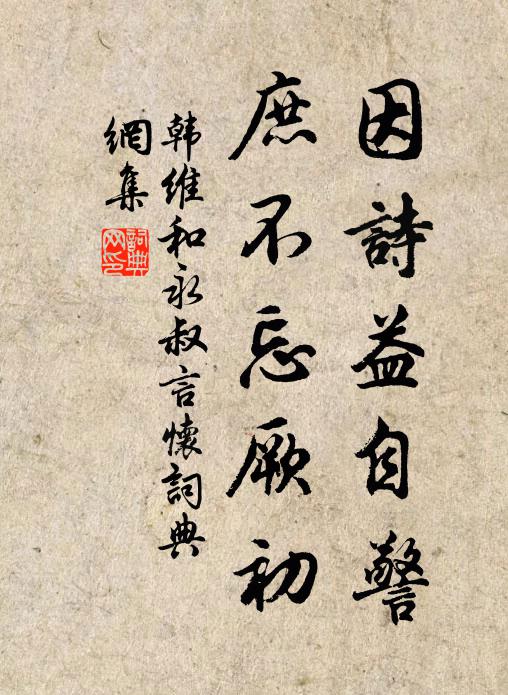 因詩益自警
庶不忘厥初
韩維和永叔言懷詞典
網集
詞典
网印